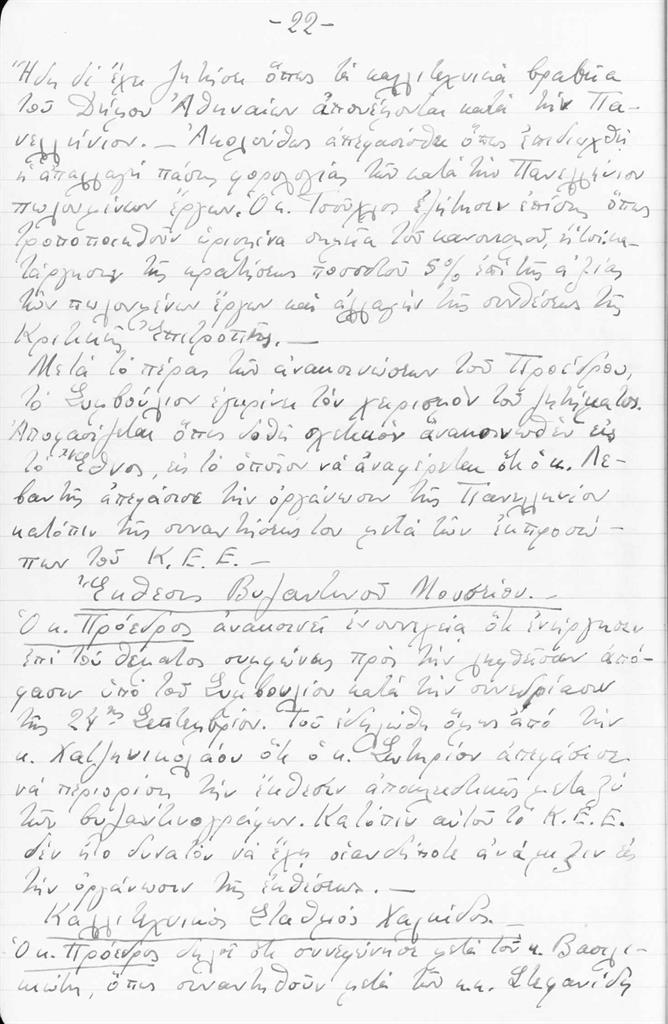 -22-
Ἤδη δὲ ἔχει ζητήσει ὅπως τὰ καλλιτεχνικὰ βραβεῖα
τοῦ Δήμου Ἀθηναίων ἀπονέμονται κατὰ τὴν Πα-
νελλήνιον. — Ἀκολούθως ἀπεφασίσθη ὅπως ἐπιδιωχθῇ
ἡ ἀπαλλαγὴ πάσης φορολογίας τῶν κατὰ τὴν Πανελλήνιον
πωλουμένων ἔργων. Ὁ κ. ἐζήτησεν ἐπίσης ὅπως
τροποποιηθοῦν ὡρισμένα σημεῖα τοῦ κανονισμοῦ, ἤτοι κα-
τάργησιν τῆς κρατήσεως ποσοστοῦ 5% ἐπὶ τῆς ἀξίας
τῶν πωλουμένων ἔργων καὶ ἀλλαγὴν τῆς συνθέσεως τῆς
Κριτικῆς Ἐπιτροπῆς. —
Μετὰ τὸ πέρας τῶν ἀνακοινώσεων τοῦ Προέδρου,
τὸ Συμβούλιον ἐγκρίνει τὸν χειρισμὸν τοῦ ζητήματος.
Ἀποφασίζεται ὅπως δοθῇ σχετικὸν ἀνακοινωθὲν εἰς
τὸ Ἔθνος, εἰς τὸ ὁποῖον νὰ ἀναφέρεται ὅτι ὁ κ. Λε-
βαντῆς ἀπεφάσισε τὴν ὀργάνωσιν τῆς Πανελληνίου
κατόπιν τῆς συναντήσεώς του μετὰ τῶν ἐκπροσώ-
πων τοῦ Κ.Ε.Ε. —
Ἔκθεσις Βυζαντινοῦ Μουσείου. —
Ὁ κ. Πρόεδρος ἀνακοινεῖ ἐν συνεχείᾳ ὅτι ἐνήργησεν
ἐπὶ τοῦ θέματος συμφώνως πρὸς τὴν ληφθεῖσαν ἀπό-
φασιν ὑπὸ τοῦ Συμβουλίου κατὰ τὴν συνεδρίασιν
τῆς 24ης Σεπτεμβρίου. Τοῦ ἐδηλώθη ὅμως ἀπὸ τὴν
κ. Χατζηνικολάου ὅτι ὁ κ. Σωτηρίου ἀπεφάσισε
νὰ περιορίσῃ τὴν ἔκθεσιν ἀποκλειστικῶς μεταξὺ
τῶν βυζαντινογράφων. Κατόπιν αὐτοῦ τὸ Κ.Ε.Ε.
δὲν ἦτο δυνατὸν νὰ ἔχῃ οἱανδήποτε ἀνάμιξιν εἰς
τὴν ὀργάνωσιν τῆς ἐκθέσεως. —
Καλλιτεχνικὸς Σταθμὸς Χαλκίδος. —
Ὁ κ. Πρόεδρος δηλοῖ ὅτι συνεφώνησε μετὰ τοῦ κ. Βασιλι-
κιώτη, ὅπως συναντηθοῦν μετὰ τῶν κ.κ. Στεφανίδη